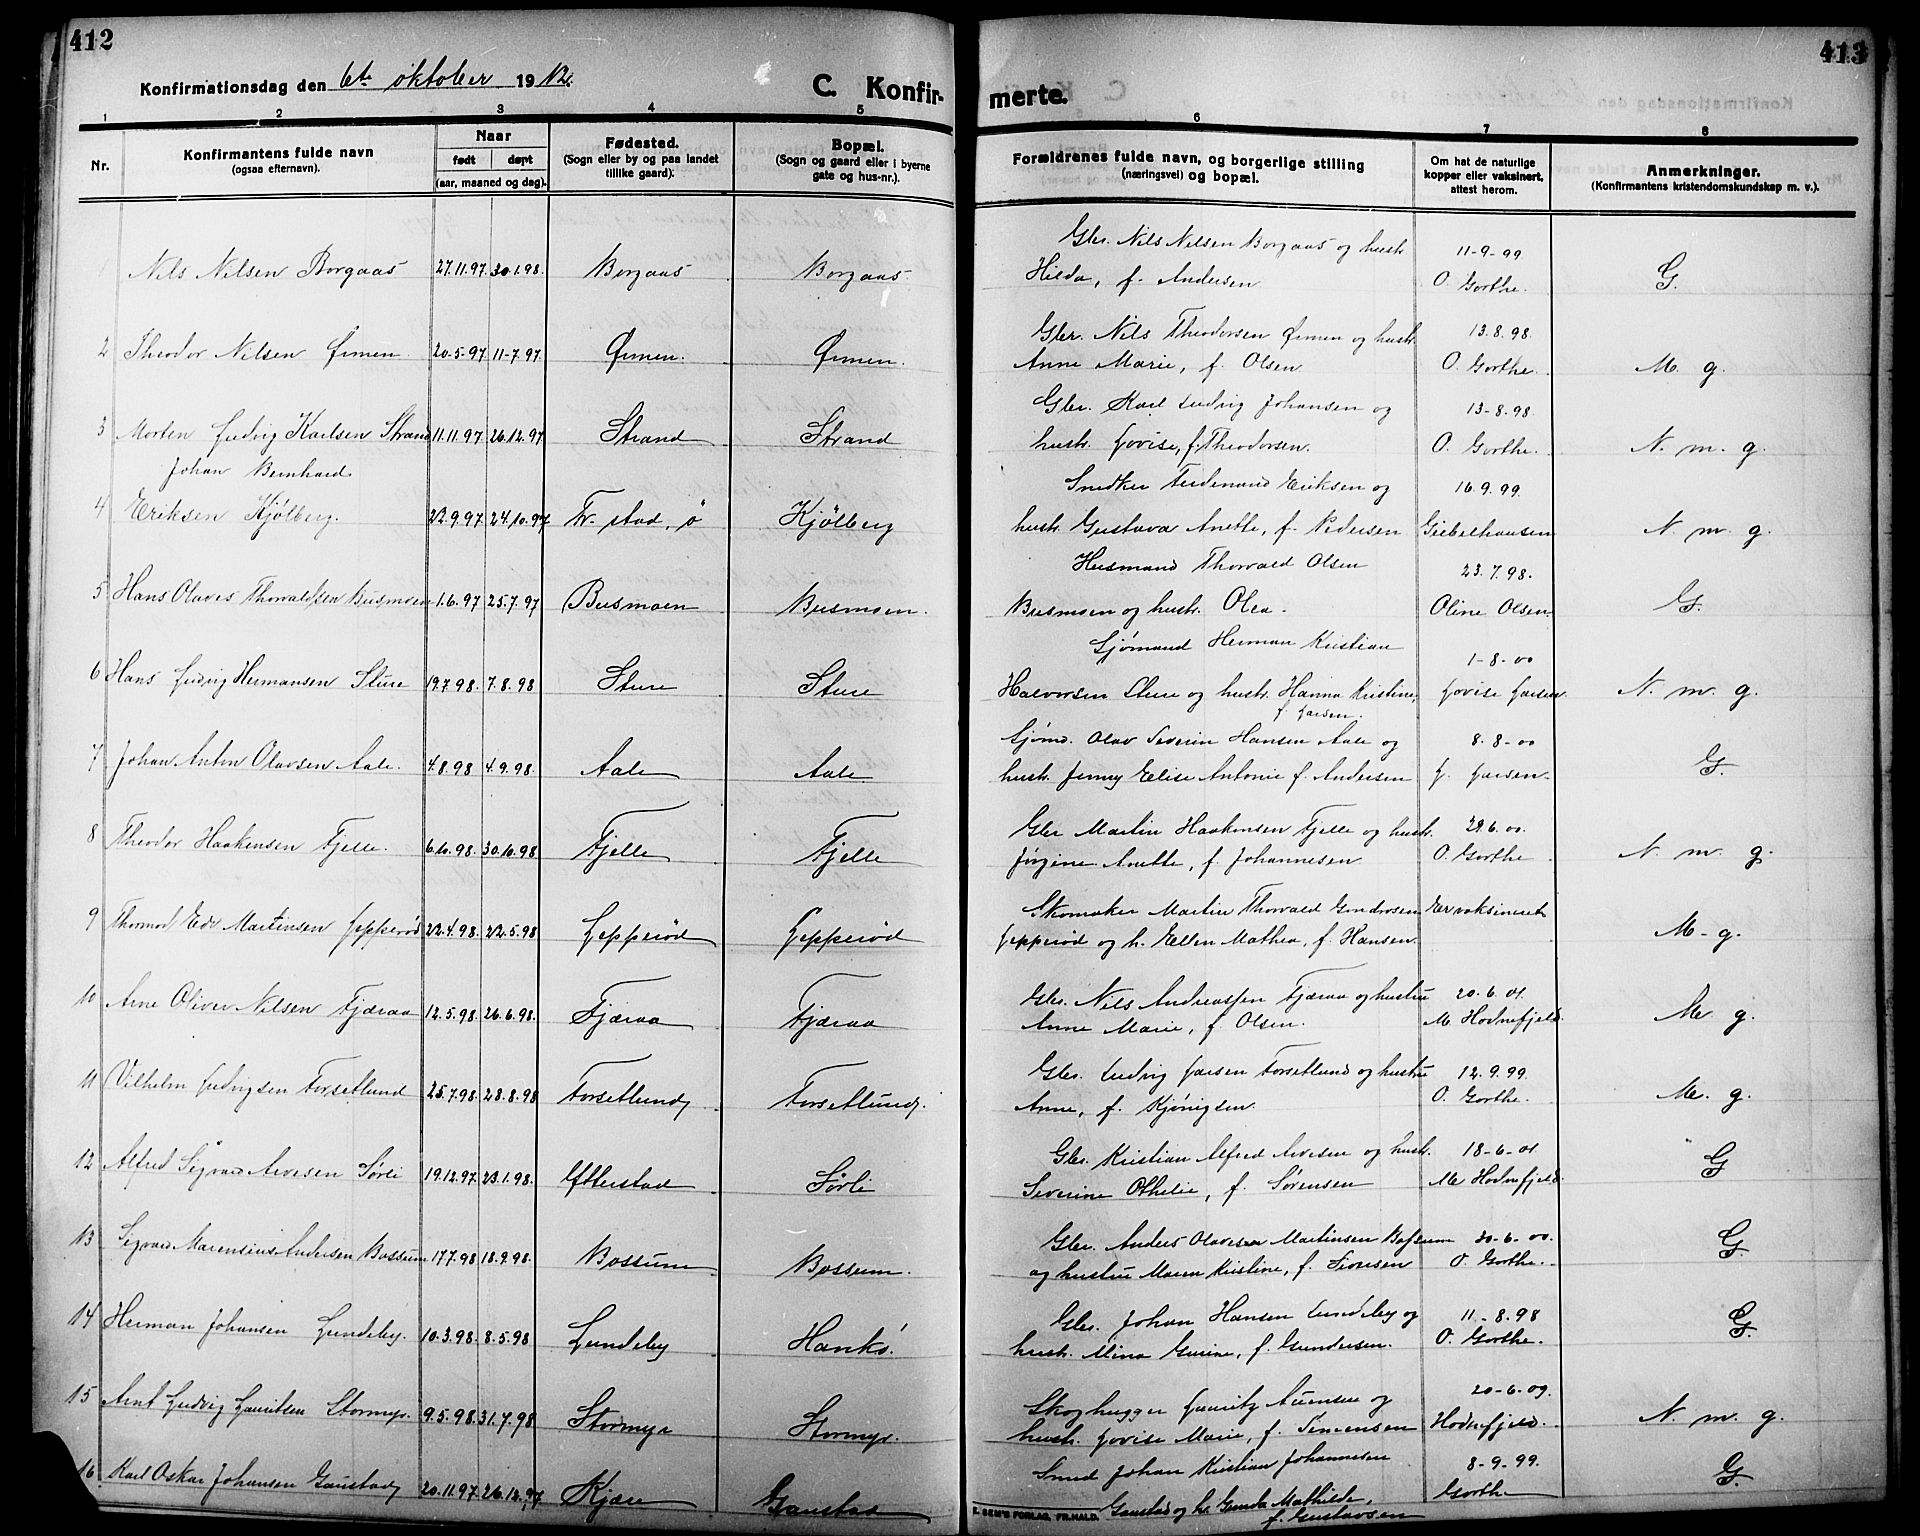 412
413
Konfirmationsdag den 6te oktober 1912.
C. Konfir-
merte.
1 2 3 4 5 6 7 8
Nr.
Konfirmantens fulde navn
(ogsaa efternavn).
Naar
født døpt
(aar, maaned og dag).
Fødested.
(Sogn eller by og paa landet
tillike gaard).
Bopæl.
(Sogn og gaard eller i byerne
gate og hus-nr.).
Forældrenes fulde navn, og borgerlige stilling
(næringsvei) og bopæl.
Om hat de naturlige
kopper eller vaksinert,
attest herom.
Anmerkninger.
(Konfirmantens kristendomskundskap m. v.).
Gbr. Nils Nilsen Borgaas og hustr. 11-9-99
1 Nils Nilsen Borgaas 27.11.97 30.1.98. Borgaas Borgaas. Hilda, f. Andersen O. Gorthe. G.
Gbr. Nils Theodorsen Ørmen og hustr. 13.8.98.
2 Theodor Nilsen Ørmen. 20.5.97 11-7.97. Ørmen. Ørmen. Anne Marie, f. Olsen. O. Gorthe. M. g.
Gbr. Karl Ludvig Johansen og 13-8.98.
3 Morten Ludvig Karlsen Strand 11.11.97 26.12.97 Strand Strand hustr. Lovise, f. Theodorsen. O. Gorthe. N. m. g.
Johan Bernhard Snedker Ferdenand Eriksen og 16.9.99.
4 Eriksen Kjölberg. 22.9.97 24.10.97 Fr.stad, ö Kjölberg hustr. Gustava Anette, f. Pedersen Giebelhausen N. m. g.
Husmand Thorvald Olsen 23.7.98.
5 Hans Olaves Thorvaldsen Busmoen 1.6.97 25.7.97 Busmoen Busmoen. Busmoen og hustr. Olea. Oline Olsen G.
Sjømand Herman Kristian 1-8-00
6 Hans Ludvig Hermansen Sture 19.7.98. 7.8.98 Sture Sture Halvorsen Sture og hustr. Hanna Kristine, f. Larsen. Lovise Larsen N. m. g.
Sjømd. Olav Severin Hansen Aale og 8.8-00
7 Johan Anton Olavsen Aale. 4.8.98 4.9.98. Aale Aale hustr. Jenny Elise Antonie f. Andersen L. Larsen. G.
Gbr Martin Haakensen Fjelle og hustr. 29.6.00.
8 Theodor Haakensen Fjelle. 6.10.98. 30.10.98 Fjelle Fjelle Jørgine Anette, f. Johannesen. O. Gorthe N. m. g.
Skomaker Martin Thorvald Er vaksineret
9 Thormod Edv Martinsen Lepperöd 22.4.98. 22.5.98 Lepperöd Lepperöd Lepperöd og h. Ellen Mathea, f. Hansen. M. g.
Gbr. Nils Andreassen Fjæraa og hustru 20.6.01.
10 Arne Oliver Nilsen Fjæraa 12.5.98. 26.6.98. Fjæraa Fjæraa Anne Marie, f. Olsen. M. Hodnefjeld. M. g.
Gbr. Ludvig Larsen Forsetlund og hustru 12.9.99.
11 Vilhelm Ludvigsen Forsetlund 25.7.98. 28.8.98 Forsetlund Forsetlund. Anne, f. Kjönigsen. O. Gorthe. M. g.
Gbr. Kristian Alfred Arvesen og hustr. 18-6-01
12 Alfred Sigvard Arvesen Sørli 19.12.97. 23.1.98. Efterstad Sørli Severine Othelie, f. Sørensen M. Hodnefjeld G
Gbr. Anders Olavesen Martinsen Bossum 20-6-00.
13 Sigvard Marensius Andersen Bossum 17.7.98 18.9.98. Bossum Bossum. og hustru Maren Kristine, f. Iversen O. Gorthe. G
Gbr. Johan Hansen Lundeby og 11.-8.98
14 Herman Johansen Lundeby. 10.3.98. 8.5.98 Lundeby Hankö. hustr. Mina Gurine, f. Gundersen. O. Gorthe. G.
Skoghugger Lauritz og 20-6-09.
15 Arnt Ludvig Lauritsen Stormyr. 9.5.98. 31.7.98 Stormyr Stormyr. hustr. Lovise Marie, f. Simensen Hodnefjeld. N. m. g.
Smed Johan Kristian Johannesen 8-9.99.
16 Karl Oskar Johansen Gaustad 20.11.97. 26.12.97 Kjære Gaustad Gaustad og h. Gunda Mathilde, f. Gustavsen Gorthe G.
E. SEM'S FORLAG, FR.HALD.